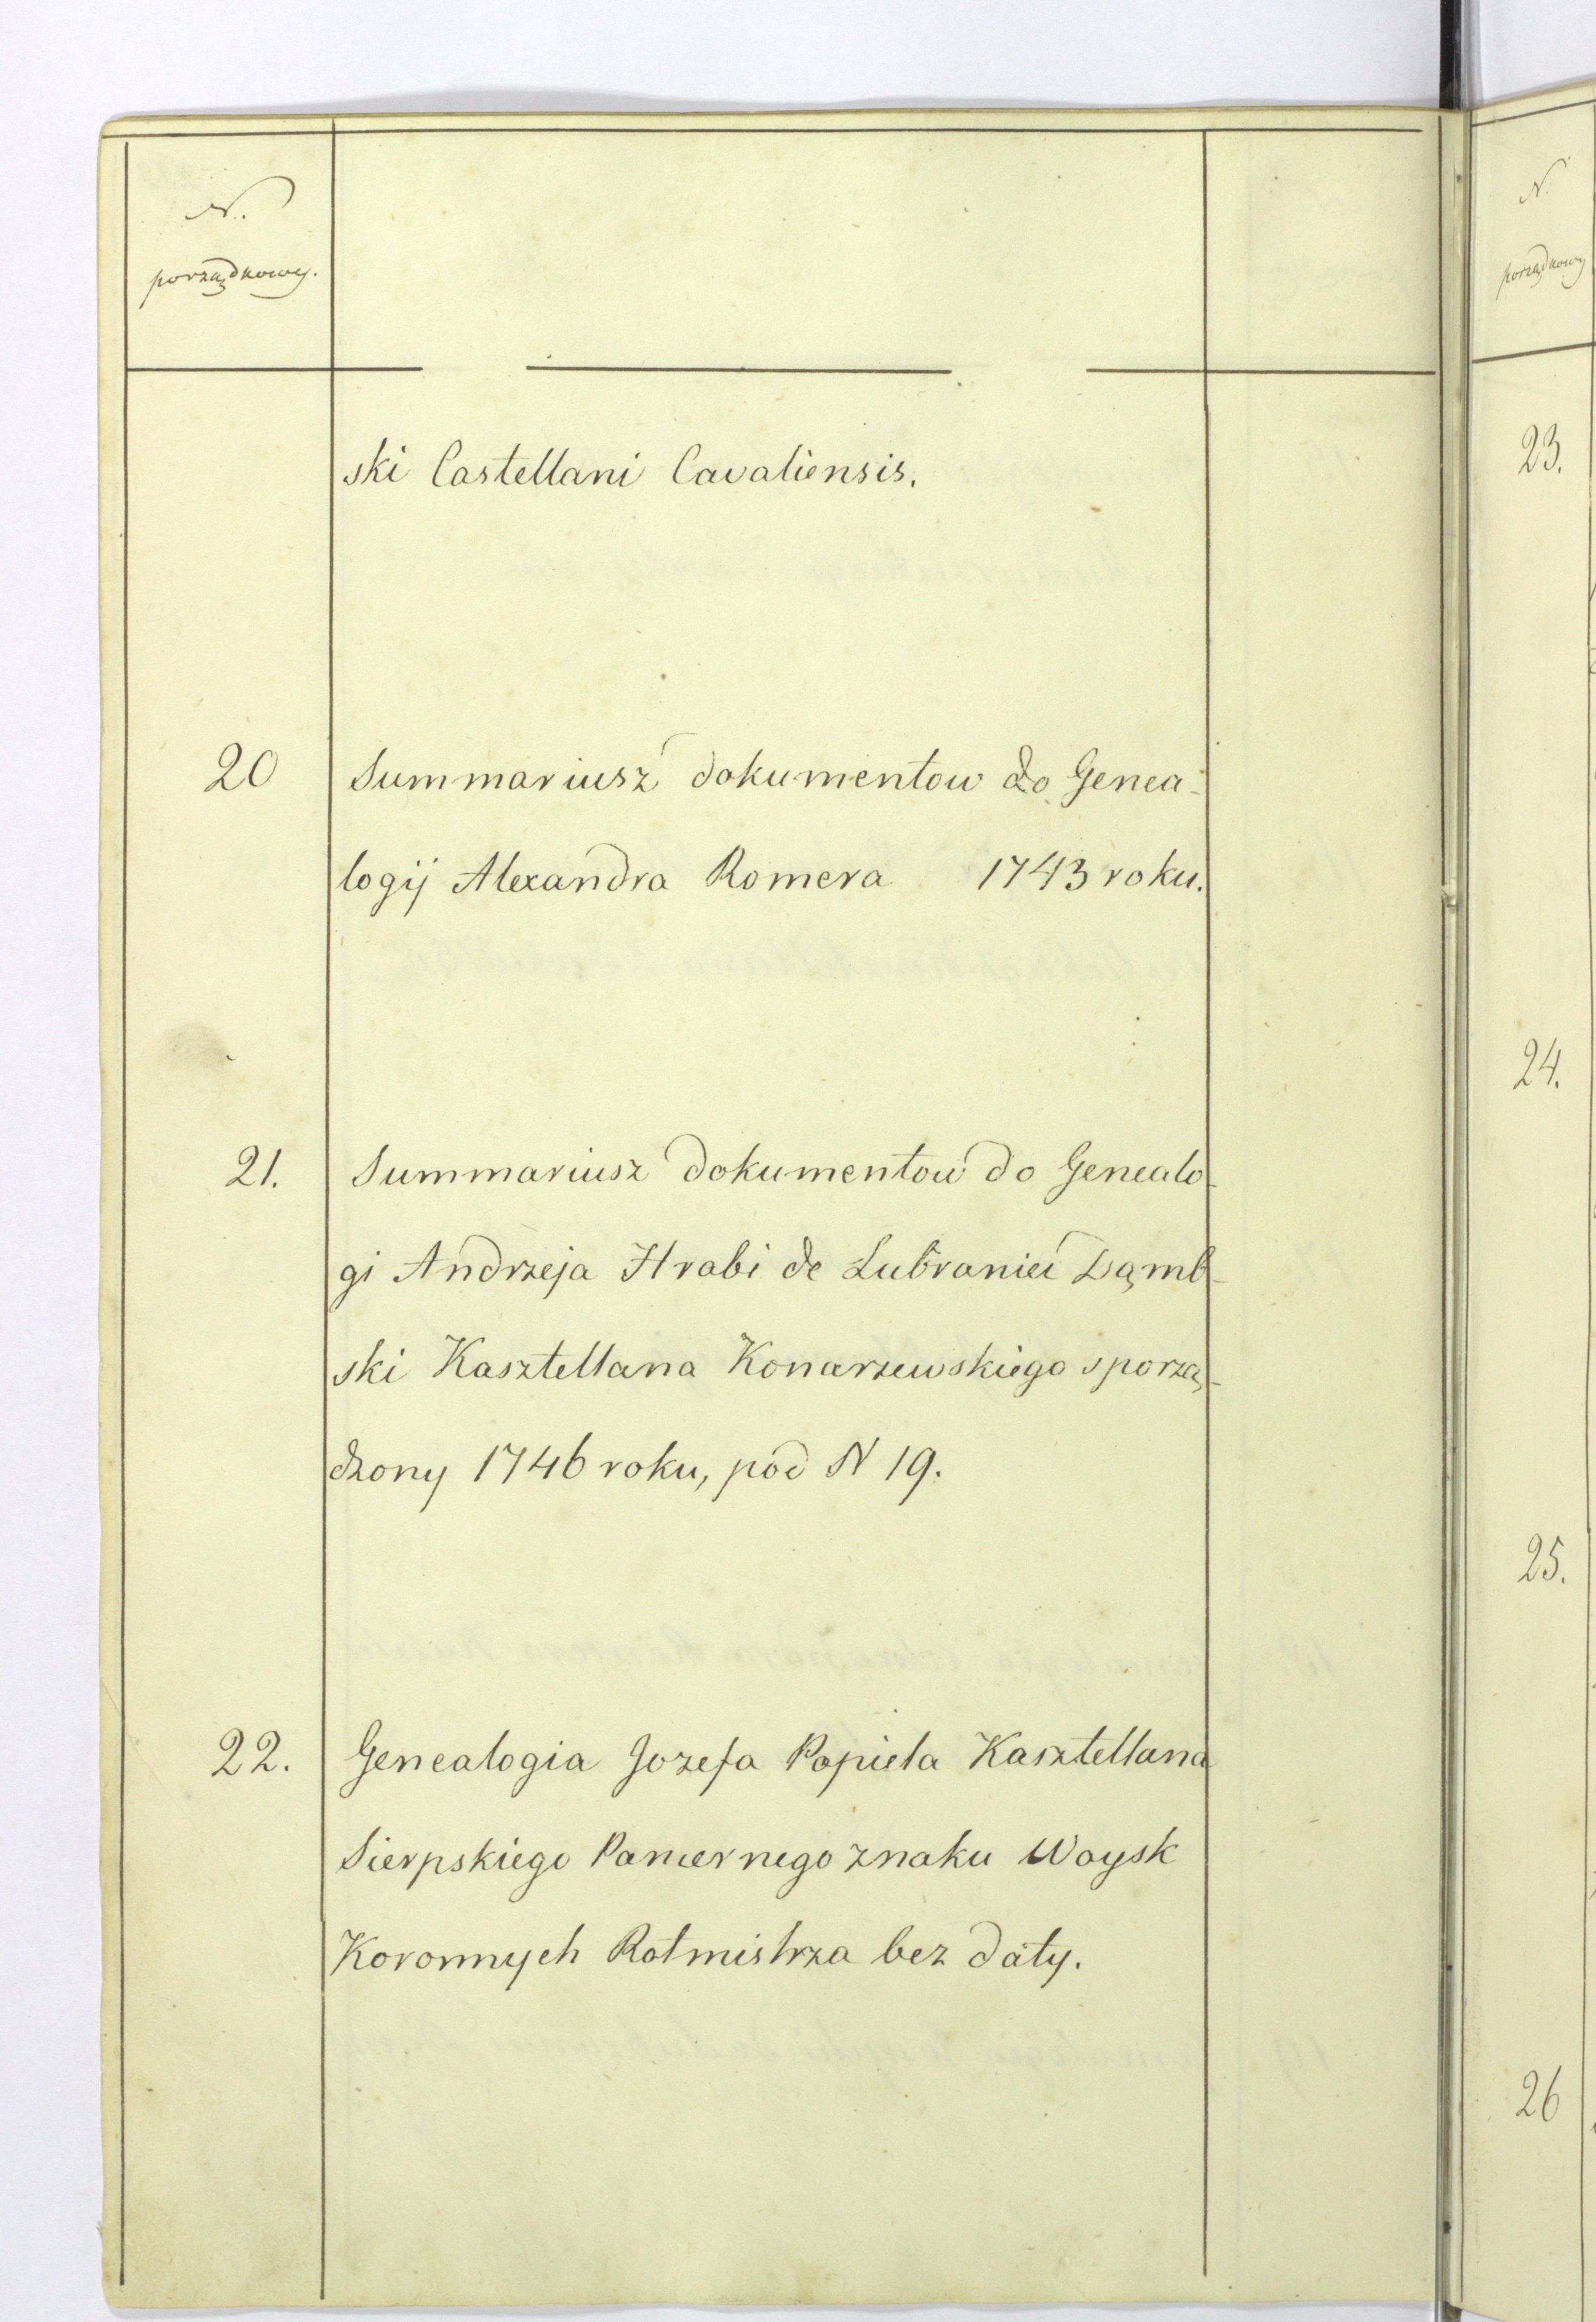 N.
porządkowy.
ski Castellani Cavaliensis.
20 Summariusz dokumentow do Genea-
logij Alexandra Romera 1743 roku.
21. Summariusz dokumentow do Genealo-
gi Andrzeja Hrabi de Lubraniec Dąmb-
ski Kasztellana Konarzewskiego sporzą-
dzony 1746 roku, pod N 19.
22. Genealogia Jozefa Popiela Kasztellana
Sierpskiego Pancernego znaku Woysk
Koronnych Rotmistrza bez daty.
N.
porządkowy
23.
24.
25.
26